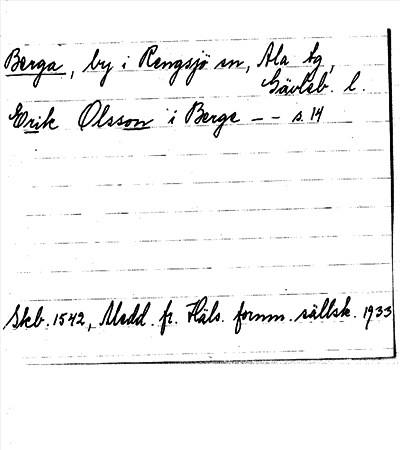 Berga, by i Rengsjö sn, Ala tg,
Gävleb. l.
Erik Olsson i Berge -- s. 14
Skb. 1542, Medd. fr. Häls. fornm. sällsk. 1933